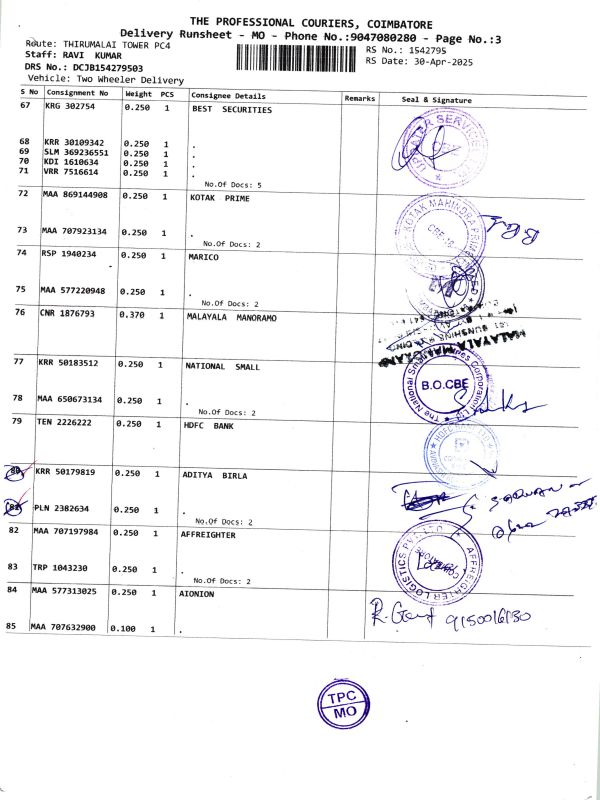 THE PROFESSIONAL COURIERS, COIMBATORE
Delivery Runsheet - MO - Phone No.:9047080280 - Page No.:3
Route: THIRUMALAI TOWER PC4
RS No.: 1542795
Staff: RAVI KUMAR
RS Date: 30-Apr-2025
DRS No.: DCJB154279503
Vehicle: Two Wheeler Delivery
S No Consignment No Weight PCS Consignee Details Remarks Seal & Signature
67 KRG 302754 0.250 1 BEST SECURITIES
68 KRR 30109342 0.250 1 .
69 SLM 369236551 0.250 1 .
70 KDI 1610634 0.250 1 .
71 VRR 7516614 0.250 1 .
No.Of Docs: 5
72 MAA 869144908 0.250 1 KOTAK PRIME
73 MAA 707923134 0.250 1 .
No.Of Docs: 2
74 RSP 1940234 0.250 1 MARICO
75 MAA 577220948 0.250 1 .
No.Of Docs: 2
76 CNR 1876793 0.370 1 MALAYALA MANORAMO
77 KRR 50183512 0.250 1 NATIONAL SMALL
B.O.CBE
78 MAA 650673134 0.250 1 .
No.Of Docs: 2
79 TEN 2226222 0.250 1 HDFC BANK
80 KRR 50179819 0.250 1 ADITYA BIRLA
81 PLN 2382634 0.250 1 .
No.Of Docs: 2
82 MAA 707197984 0.250 1 AFFREIGHTER
83 TRP 1043230 0.250 1 .
No.Of Docs: 2
84 MAA 577313025 0.250 1 AIONION
9150016130
85 MAA 707632900 0.100 1 .
TPC
MO